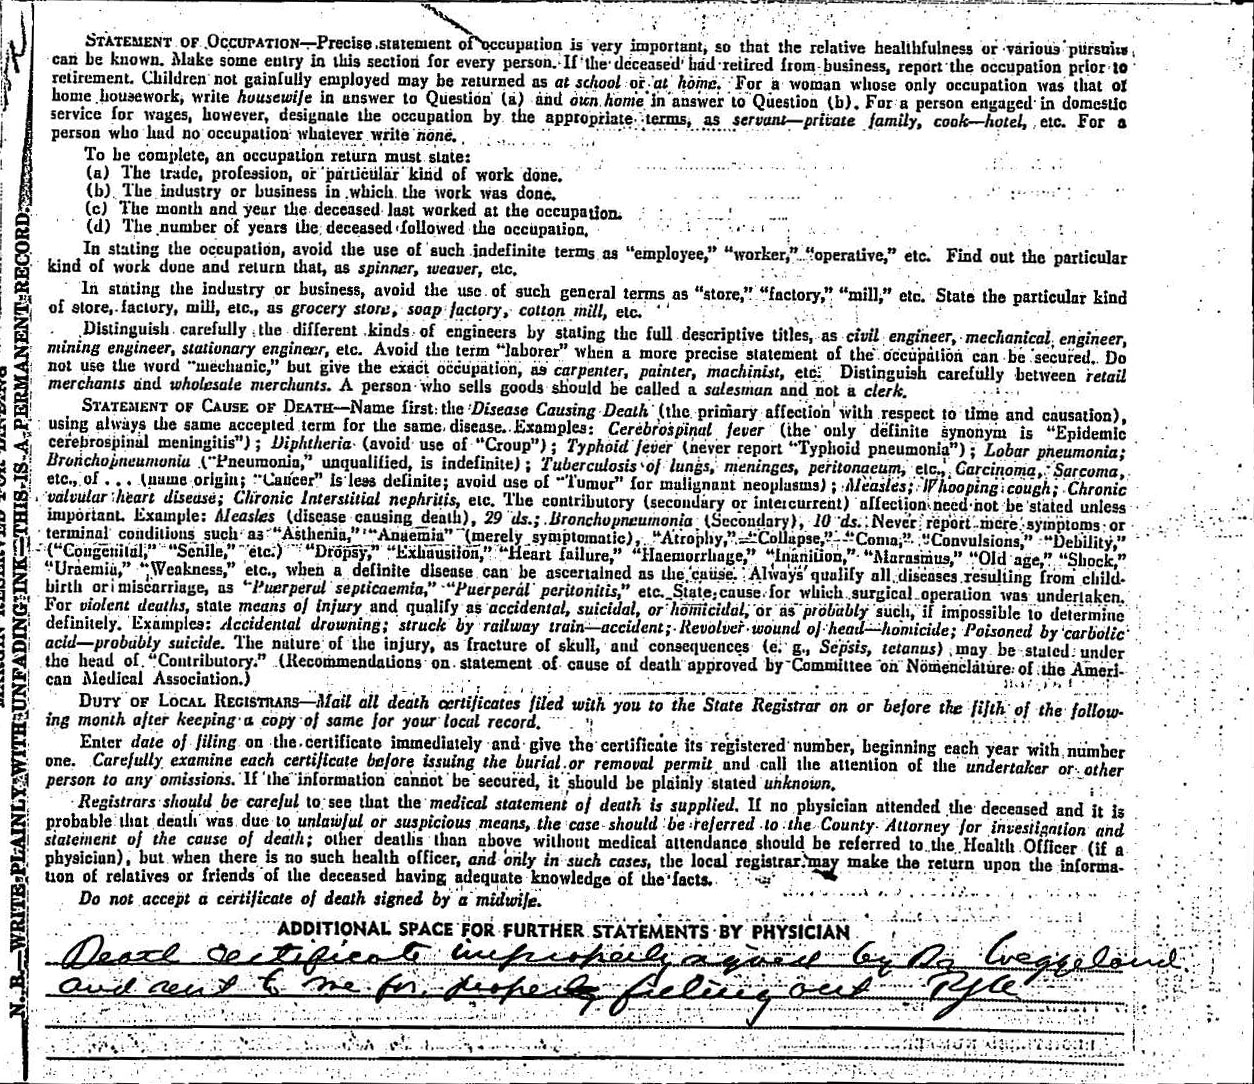 STATEMENT OF OCCUPATION—Precise statement of occupation is very important, so that the relative healthfulness or various pursuits
can be known. Make some entry in this section for every person. If the deceased had retired from business, report the occupation prior to
retirement. Children not gainfully employed may be returned as at school or at home. For a woman whose only occupation was that of
home housework, write housewife in answer to Question (a) and own home in answer to Question (b). For a person engaged in domestic
service for wages, however, designate the occupation by the appropriate terms, as servant—private family, cook—hotel, etc. For a
person who had no occupation whatever write none.
To be complete, an occupation return must state:
(a) The trade, profession, or particular kind of work done.
(b) The industry or business in which the work was done.
(c) The month and year the deceased last worked at the occupation.
(d) The number of years the deceased followed the occupation.
In stating the occupation, avoid the use of such indefinite terms as "employee," "worker," "operative," etc. Find out the particular
kind of work done and return that, as spinner, weaver, etc.
In stating the industry or business, avoid the use of such general terms as "store," "factory," "mill," etc. State the particular kind
of store, factory, mill, etc., as grocery store, soap factory, cotton mill, etc.
Distinguish carefully the different kinds of engineers by stating the full descriptive titles, as civil engineer, mechanical engineer,
mining engineer, stationary engineer, etc. Avoid the term "laborer" when a more precise statement of the occupation can be secured. Do
not use the word "mechanic," but give the exact occupation, as carpenter, painter, machinist, etc. Distinguish carefully between retail
merchants and wholesale merchants. A person who sells goods should be called a salesman and not a clerk.
STATEMENT OF CAUSE OF DEATH—Name first the Disease Causing Death (the primary affection with respect to time and causation),
using always the same accepted term for the same disease. Examples: Cerebrospinal fever (the only definite synonym is "Epidemic
cerebrospinal meningitis"); Diphtheria (avoid use of "Croup"); Typhoid fever (never report "Typhoid pneumonia"); Lobar pneumonia;
Bronchopneumonia ("Pneumonia," unqualified, is indefinite); Tuberculosis of lungs, meninges, peritonaeum, etc., Carcinoma, Sarcoma,
etc., of . . . (name origin; "Cancer" is less definite; avoid use of "Tumor" for malignant neoplasms); Measles; Whooping cough; Chronic
valvular heart disease; Chronic Interstitial nephritis, etc. The contributory (secondary or intercurrent) affection need not be stated unless
important. Example: Measles (disease causing death), 29 ds.; Bronchopneumonia (Secondary), 10 ds. Never report mere symptoms or
terminal conditions such as "Asthenia," "Anaemia" (merely symptomatic), "Atrophy," "Collapse," "Coma," "Convulsions," "Debility,"
("Congenital," "Senile," etc.) "Dropsy," "Exhaustion," "Heart failure," "Haemorrhage," "Inanition," "Marasmus," "Old age," "Shock,"
"Uraemia," "Weakness," etc., when a definite disease can be ascertained as the cause. Always qualify all diseases resulting from child-
birth or miscarriage, as "Puerperal septicaemia," "Puerperal peritonitis," etc. State cause for which surgical operation was undertaken.
For violent deaths, state means of injury and qualify as accidental, suicidal, or homicidal, or as probably such, if impossible to determine
definitely. Examples: Accidental drowning; struck by railway train—accident; Revolver wound of head—homicide; Poisoned by carbolic
acid—probably suicide. The nature of the injury, as fracture of skull, and consequences (e. g., Sepsis, tetanus) may be stated under
the head of "Contributory." (Recommendations on statement of cause of death approved by Committee on Nomenclature of the Ameri-
can Medical Association.)
DUTY OF LOCAL REGISTRARS—Mail all death certificates filed with you to the State Registrar on or before the fifth of the follow-
ing month after keeping a copy of same for your local record.
Enter date of filing on the certificate immediately and give the certificate its registered number, beginning each year with number
one. Carefully examine each certificate before issuing the burial or removal permit and call the attention of the undertaker or other
person to any omissions. If the information cannot be secured, it should be plainly stated unknown.
Registrars should be careful to see that the medical statement of death is supplied. If no physician attended the deceased and it is
probable that death was due to unlawful or suspicious means, the case should be referred to the County Attorney for investigation and
statement of the cause of death; other deaths than above without medical attendance should be referred to the Health Officer (if a
physician), but when there is no such health officer, and only in such cases, the local registrar may make the return upon the informa-
tion of relatives or friends of the deceased having adequate knowledge of the facts.
Do not accept a certificate of death signed by a midwife.
ADDITIONAL SPACE FOR FURTHER STATEMENTS BY PHYSICIAN
Death certificate improperly signed by Dr Weggeland
and sent to me for properly filling out
N. B.—WRITE PLAINLY WITH UNFADING INK—THIS IS A PERMANENT RECORD.